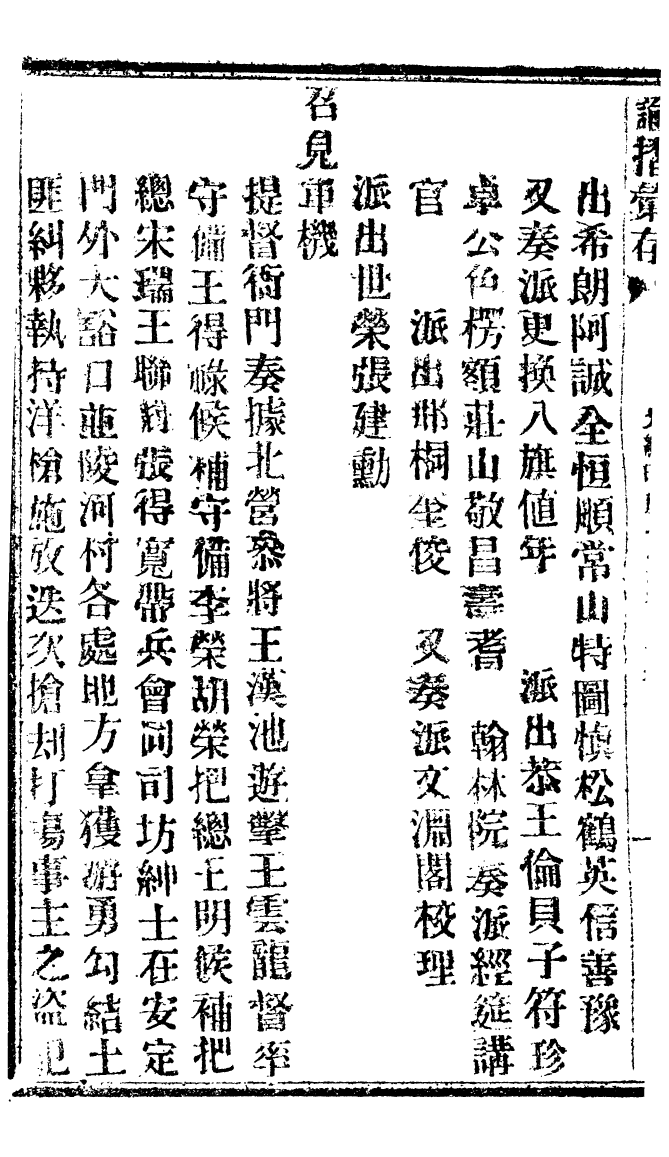 諭摺彙存
出希朗阿誠全恒順常山特圖慎松鶴英信善豫
又奏派更換八旗值年　派出恭王倫貝子符珍
卓公色楞額莊山敬昌壽耆　翰林院奏派經筵講
官　派出那桐全俊　又奏派文淵閣校理
派出世榮張建勳
召見軍機
提督衙門奏據北營叅將王漢池遊擊王雲龍督率
守備王得祿候補守備李榮胡榮把總王明候補把
總宋瑞王聯對張得寬帶兵會同司坊紳士在安定
門外大豁口並陵河村各處地方拿獲游勇勾結土
匪糾夥執持洋槍施放迭次搶刦打塲事主之盜犯